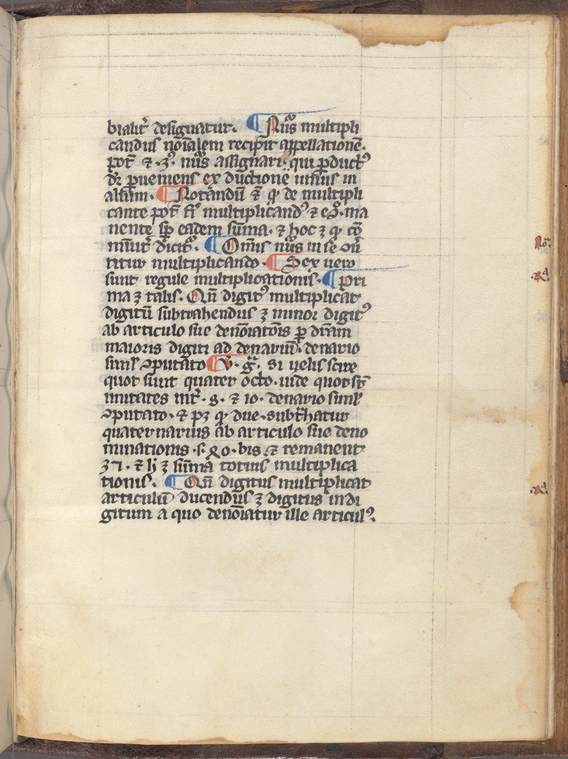 bialit᷑ designatur. ¶ Nūs multipli
candus noīalem recipit appellationē.
pot᷑ ⁊ ꝫ nūs assignari qui ꝓduct⁹
dr̄ ꝓueniens ex ductione uniꝰ in
altum. ¶ Notandū ⁊ ꝙ de multipli
cante pot᷑ fi᷑ multiplicand⁹ ⁊ eꝯ. ma
nente sꝑ eadem sūma. ⁊ hoc ꝫ ꝙ cō
mūit᷑ dicit᷑. ¶ Omīs nūs in se
titur multiplicando. ¶ Sex uero
sunt regule multiplicationis. ¶ Pri
ma ꝫ talis. Qn̄ digit⁹ multiplicat
digitū subtrahendus ꝫ minor digit⁹
ab articulo sue denoīatōis ꝑ dr̄am
maioris digiti ad denariū. denario
simł ꝯputato ¶ V. g̃. si uelis scire
quot sunt quater octo. uide quot st̄
unitates int᷑. 8. ⁊ 10. denario simł
ꝯputato. ⁊ pꝫ ꝙ due. subt̄hatur
quaternarius ab articulo sue deno
minationis .s. 40. bis ⁊ remanent
32. ⁊ h̄ ꝫ sūma totius multiplica
tionis. ¶ Qn̄ digitus multiplicat
articulū ducendus ꝫ digitus in di
gitum a quo denoīatur ille articul⁹.